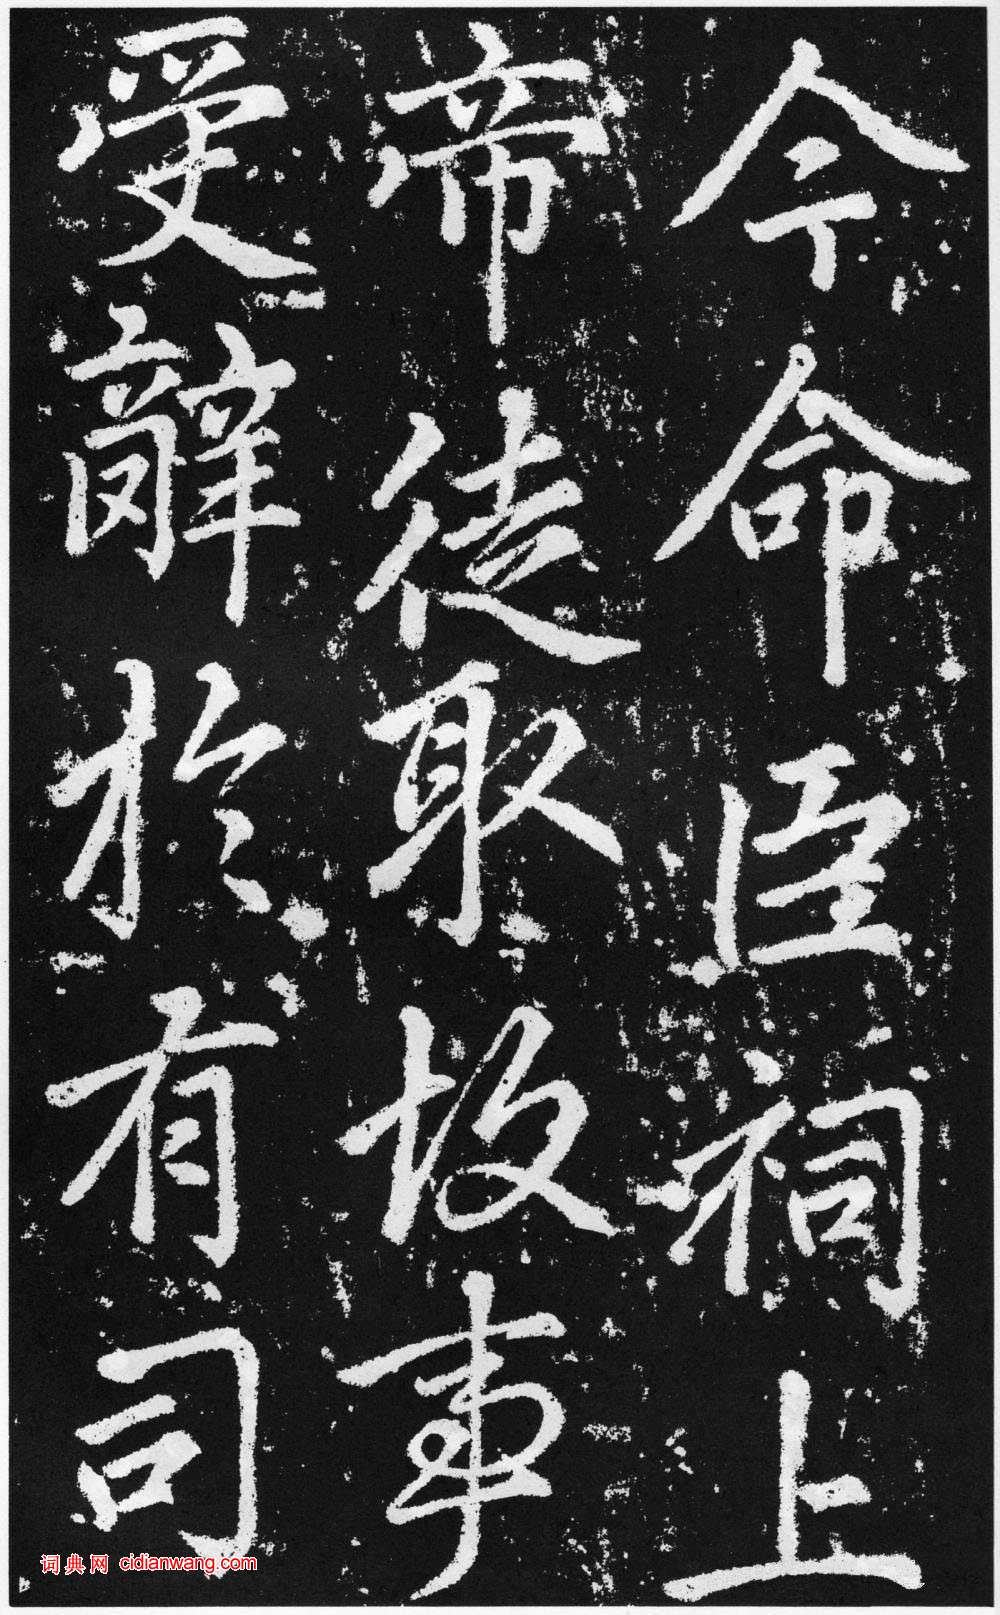 今命臣祠上
帝徒取故事
受辭於有司
词典网 cidianwang.com